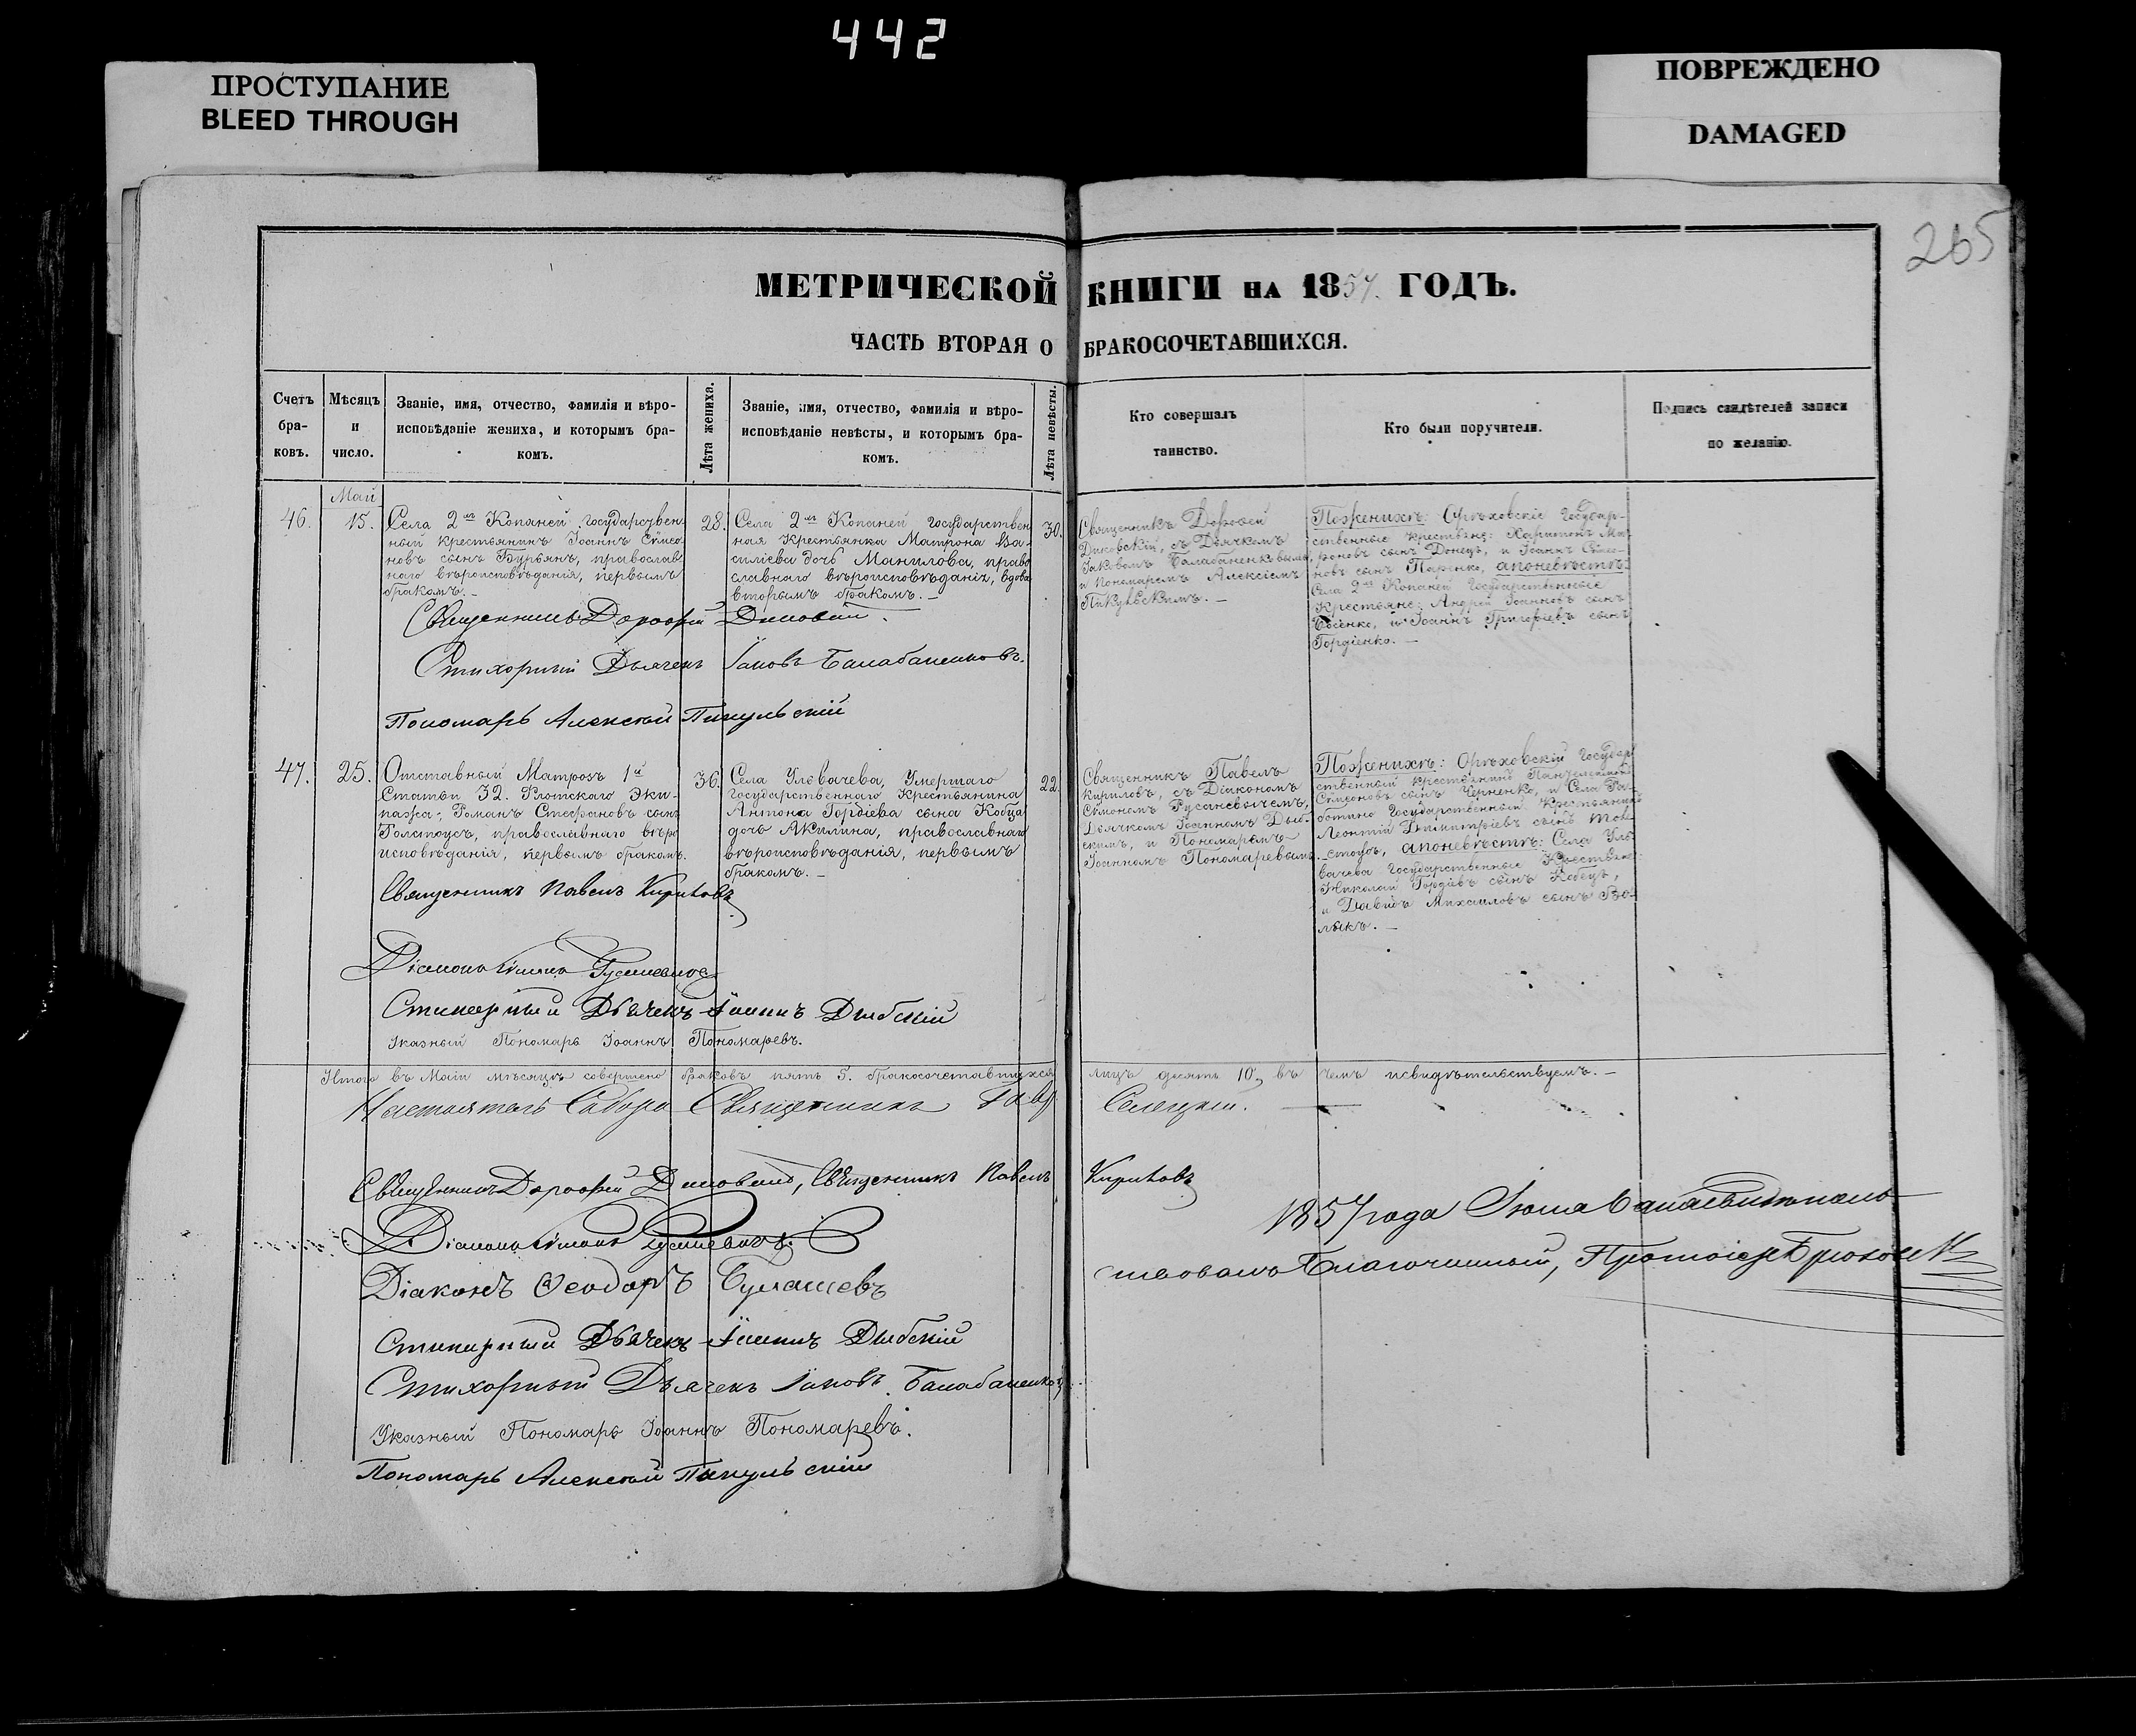 442
ПРОСТУПАНИЕ
BLEED THROUGH
ПОВРЕЖДЕНО
DAMAGED
265
МЕТРИЧЕСКОЙ КНИГИ НА 1857. ГОДЪ.
ЧАСТЬ ВТОРАЯ О БРАКОСОЧЕТАВШИХСЯ.
Счетъ
бра-
ковъ.
Мѣсяцъ
и
число.
Званіе, имя, отчество, фамилія и вѣро-
исповѣданіе жениха, и которымъ бра-
комъ.
Лѣта жениха.
Званіе, имя, отчество, фамилія и вѣро-
исповѣданіе невѣсты, и которымъ бра-
комъ.
Лѣта невѣсты.
Кто совершалъ
таинство.
Кто были поручители.
Подпись свидѣтелей записи
по желанію.
46.
Май
15.
Села 2й Копаней государствен-
ный крестьянинъ Іоаннъ Симео-
новъ сынъ Бурьянъ, православ-
наго вѣроисповѣданія, первымъ
бракомъ. —
28.
Села 2й Копаней государствен-
ная крестьянка Матрона Ва-
силіева дочь Манилова, право-
славнаго вѣроисповѣданія, вдова
вторымъ бракомъ. —
30.
Священникъ Дорофей
Диковскій, съ Дьячкомъ
Іаковомъ Балабаненковымъ,
и Пономаремъ Алексіемъ
Пикульскимъ. —
Поженихѣ: Орѣховскіе Государ-
ственные крестьяне: Харитонъ Ми-
роновъ сынъ Донецъ, и Іоаннъ Симео-
новъ сынъ апоневѣстѣ:
Села 2й Копаней Государственные
Крестьяне: Андрей Іоанновъ сынъ
и Іоаннъ Григоріевъ сынъ
Гордіенко. —
Священникъ Дорофей
Стихарный Дьячекъ Іаковъ Балабаненковъ.
Пономарь Алексѣй Пикульскій
47.
25.
Отставный Матрозъ 1й
Статьи 32. Флотскаго Эки-
пажа, Романъ Стефановъ сынъ
Толстоусъ, православнаго вѣро-
исповѣданія, первымъ бракомъ.
36.
Села Ульвачева, Умершаго
Государственнаго Крестьянина
Антона Гордіева сына Кобца
дочь Акилина, православнаго
вѣроисповѣданія, первымъ
бракомъ. —
22.
Священникъ Павелъ
Кириловъ, съ Діакономъ
Симономъ Русаневычемъ,
Дьячкомъ Іоанномъ Дыб-
скимъ, и Пономаремъ
Іоанномъ Пономаревымъ.
Поженихѣ: Орѣховскій Государ-
ственный крестьянинъ Пантелеимонъ
Симеоновъ сынъ Черненко, и Села
Государственный Крестьянинъ
Леонтій Димитріевъ сынъ Тол-
стоусъ, апоневѣстѣ: Села Уль-
вачева Государственные Крестьяне:
Николай Гордіевъ сынъ Кобецъ,
и Давидъ Михаиловъ сынъ Во-
лыкъ. —
Священникъ Павелъ Кириловъ
Діаконъ Симонъ Русаневичъ
Стихарный Дьячекъ Іоаннъ Дыбскій
Указный Пономарь Іоаннъ Пономаревъ.
Итого въ Маіи мѣсяцѣ совершено браковъ пять 5. бракосочетавшихся лицъ десять 10, въ чемъ и свидѣтельствуемъ. —
Настоятель Собора Священникъ
Священникъ Дорофей Священникъ Павелъ Кириловъ
Діаконъ Симонъ Русаневичъ.
Діаконъ Ѳеодоръ Булашевъ
Стихарный Дьячекъ Іоаннъ Дыбскій
Стихарный Дьячекъ Іаковъ Балабаненковъ
Указный Пономарь Іоаннъ Пономаревъ.
Пономарь Алексѣй Пикульскій
1857 года Іюля 6 дня свидѣтель-
ствовалъ Благочинный, Протоіерей